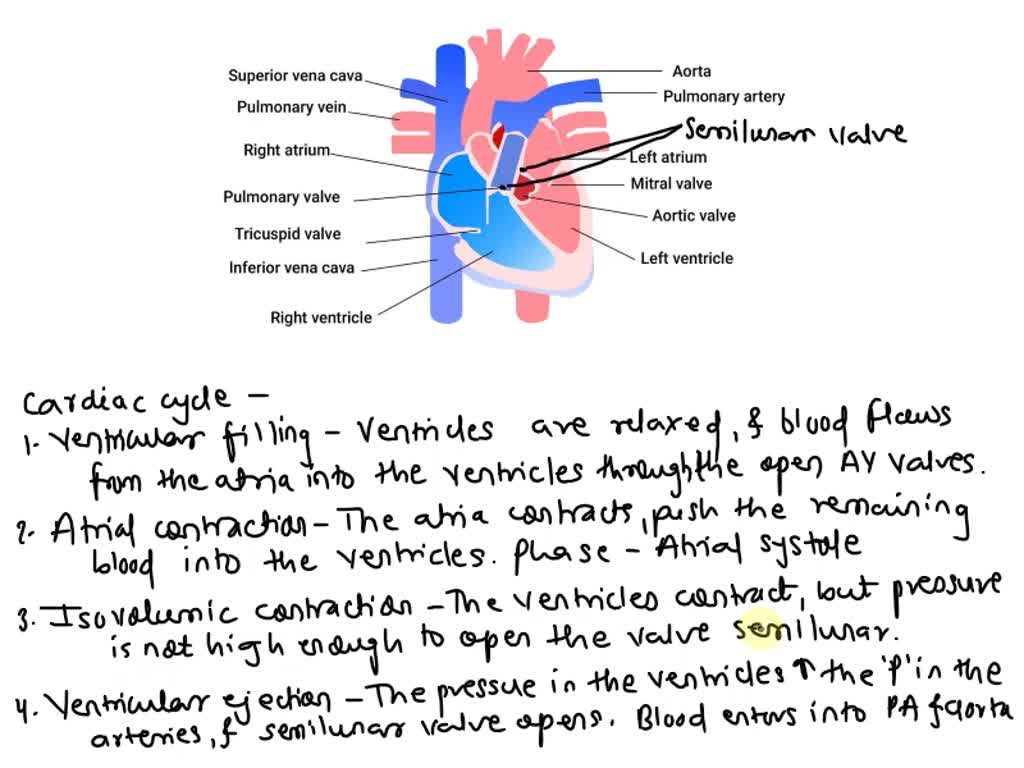 Superior vena cava
Aorta
Pulmonary vein
Pulmonary artery
Semilunar valve
Right atrium
Left atrium
Pulmonary valve
Mitral valve
Aortic valve
Tricuspid valve
Inferior vena cava
Left ventricle
Right ventricle
Cardiac cycle -
1. Ventricular filling - Ventricles are relaxed, & blood flows
from the atria into the ventricles through the open AV valves.
2. Atrial contraction - The atria contracts, push the remaining
blood into the ventricles. Phase - Atrial systole
3. Isovolumic contraction - The ventricles contract, but pressure
is not high enough to open the valve semilunar.
4. Ventricular ejection - The pressue in the ventricles ↑ the 'P' in the
arteries, & semilunar valve opens. Blood enters into PA & aorta